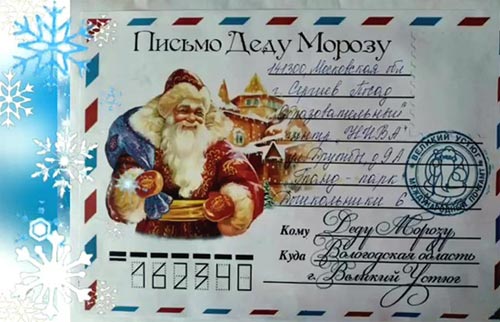 Письмо Деду Морозу
141300 Московская обл
г. Сергиев Посад
Образовательный
центр "НИВА"
д 9А
Гранд - парк
Школьники 6
ВЕЛИКИЙ УСТЮГ
Кому Деду Морозу,
Куда Вологодская область
г. Великий Устюг
162340